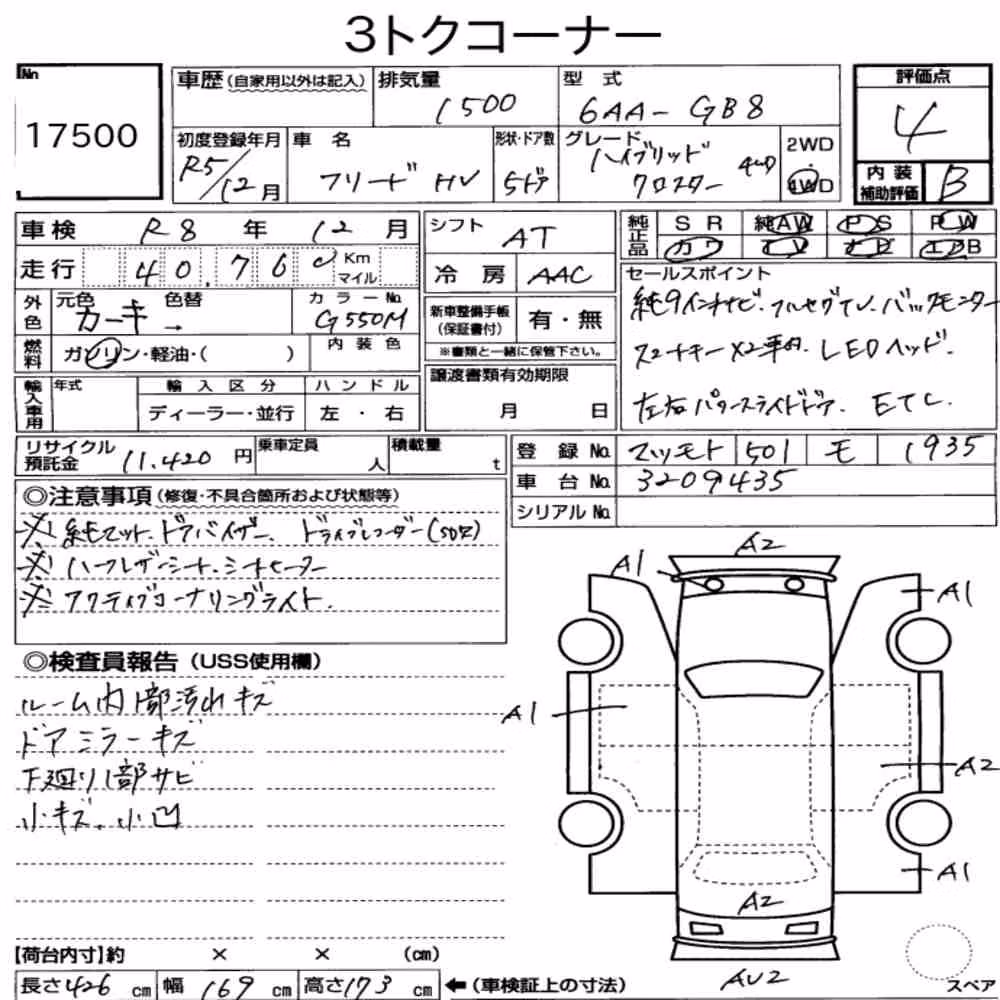 3トクコーナー
No 17500
車歴(自家用以外は記入) 排気量 1500 型式 6AA-GB8
評価点 4
初度登録年月 R5/12月 車名 フリード HV 形状・ドア数 5ドア グレード ハイブリッド クロスター 4WD 2WD・4WD
内装補助評価 B
車検 R8年 12月
走行 40,760 Km マイル
外色 元色 カーキ→ 色替 カラーNo. G550M
燃料 ガソリン・軽油・( ) 内装色
輸入車用 年式 輸入区分 ディーラー・並行 ハンドル 左・右
シフト AT
冷房 AAC
新車整備手帳(保証書付) 有・無
※書類と一緒に保管下さい。
譲渡書類有効期限
月 日
純正品 SR 純AW PS PW
カワ TV ナビ エアB
セールスポイント
純9インチナビ.フルセグTV.バックモニター
スマートキー×2車内.LEDヘッド.
左右パワースライドドア. ETC.
リサイクル預託金 11.420円 乗車定員 人 積載量 t
登録No. マツモト 501 モ 1935
車台No. 3209435
シリアルNo.
◎注意事項(修復・不具合箇所および状態等)
※純マット.ドアバイザー. ドライブレコーダー(社外)
※ハーフレザーシート.シートヒーター
※アクティブコーナリングライト.
◎検査員報告(USS使用欄)
ルーム内1部汚れキズ
ドアミラーキズ
下廻り1部サビ
小キズ.小凹
A2
A1
A1
A1
A2
A1
A2
AU2
スペア
【荷台内寸】約 × × (cm)
長さ426cm 幅169cm 高さ173cm ←(車検証上の寸法)